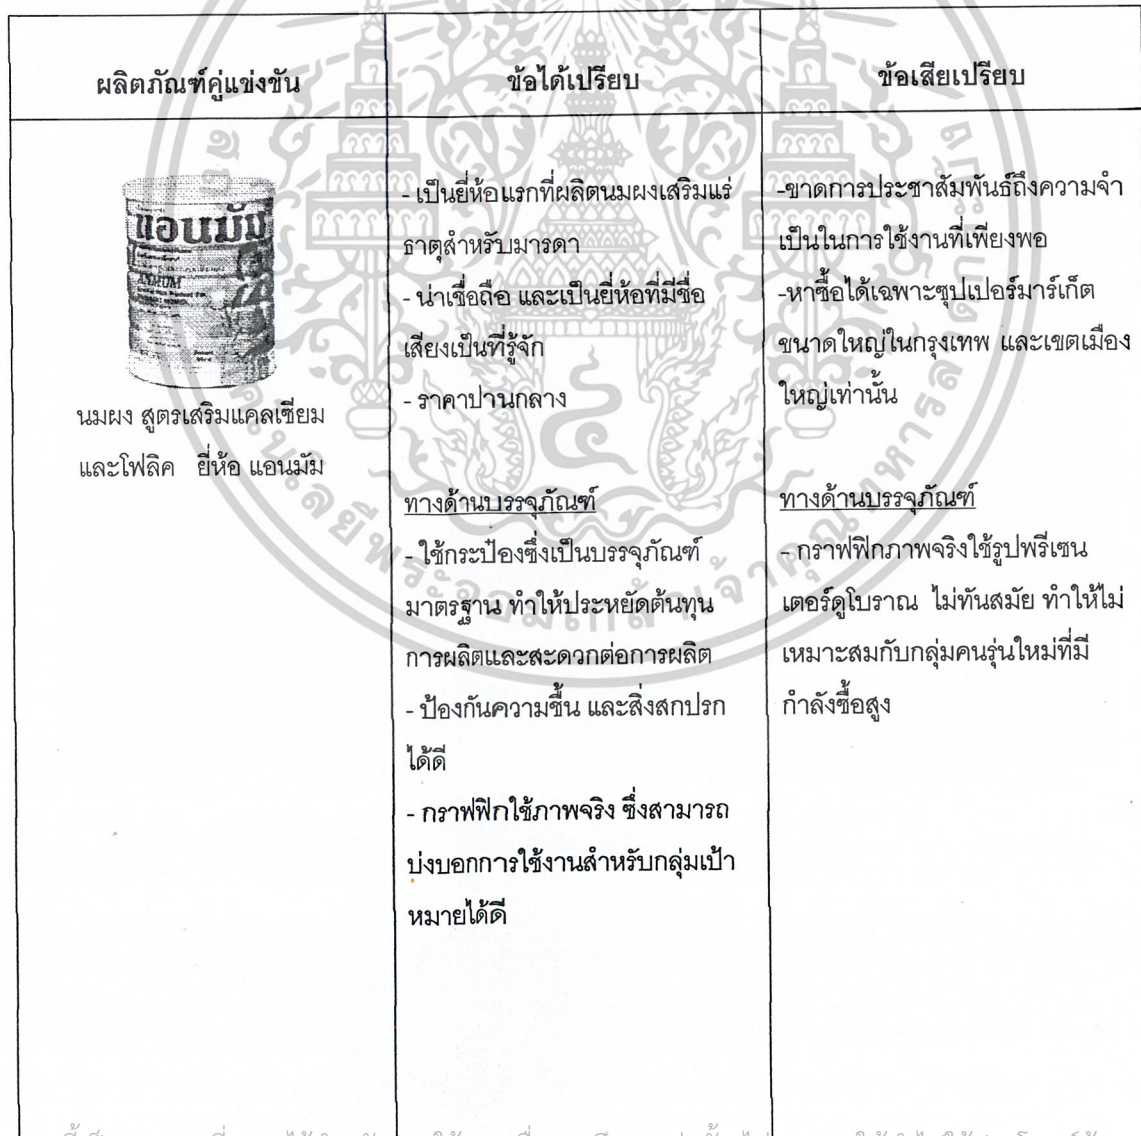 ผลิตภัณฑ์คู่แข่งขัน
ข้อได้เปรียบ
ข้อเสียเปรียบ
แอนมัม
ANMUM
นมผง สูตรเสริมแคลเซียม
และโฟลิค ยี่ห้อ แอนมัม
- เป็นยี่ห้อแรกที่ผลิตนมผงเสริมแร่
ธาตุสำหรับมารดา
- น่าเชื่อถือ และเป็นยี่ห้อที่มีชื่อ
เสียงเป็นที่รู้จัก
- ราคาปานกลาง
ทางด้านบรรจุภัณฑ์
- ใช้กระป๋องซึ่งเป็นบรรจุภัณฑ์
มาตรฐาน ทำให้ประหยัดต้นทุน
การผลิตและสะดวกต่อการผลิต
- ป้องกันความชื้น และสิ่งสกปรก
ได้ดี
- กราฟฟิกใช้ภาพจริง ซึ่งสามารถ
บ่งบอกการใช้งานสำหรับกลุ่มเป้า
หมายได้ดี
-ขาดการประชาสัมพันธ์ถึงความจำ
เป็นในการใช้งานที่เพียงพอ
-หาซื้อได้เฉพาะซุปเปอร์มาร์เก็ต
ขนาดใหญ่ในกรุงเทพ และเขตเมือง
ใหญ่เท่านั้น
ทางด้านบรรจุภัณฑ์
- กราฟฟิกภาพจริงใช้รูปพรีเซน
เตอร์ดูโบราณ ไม่ทันสมัย ทำให้ไม่
เหมาะสมกับกลุ่มคนรุ่นใหม่ที่มี
กำลังซื้อสูง